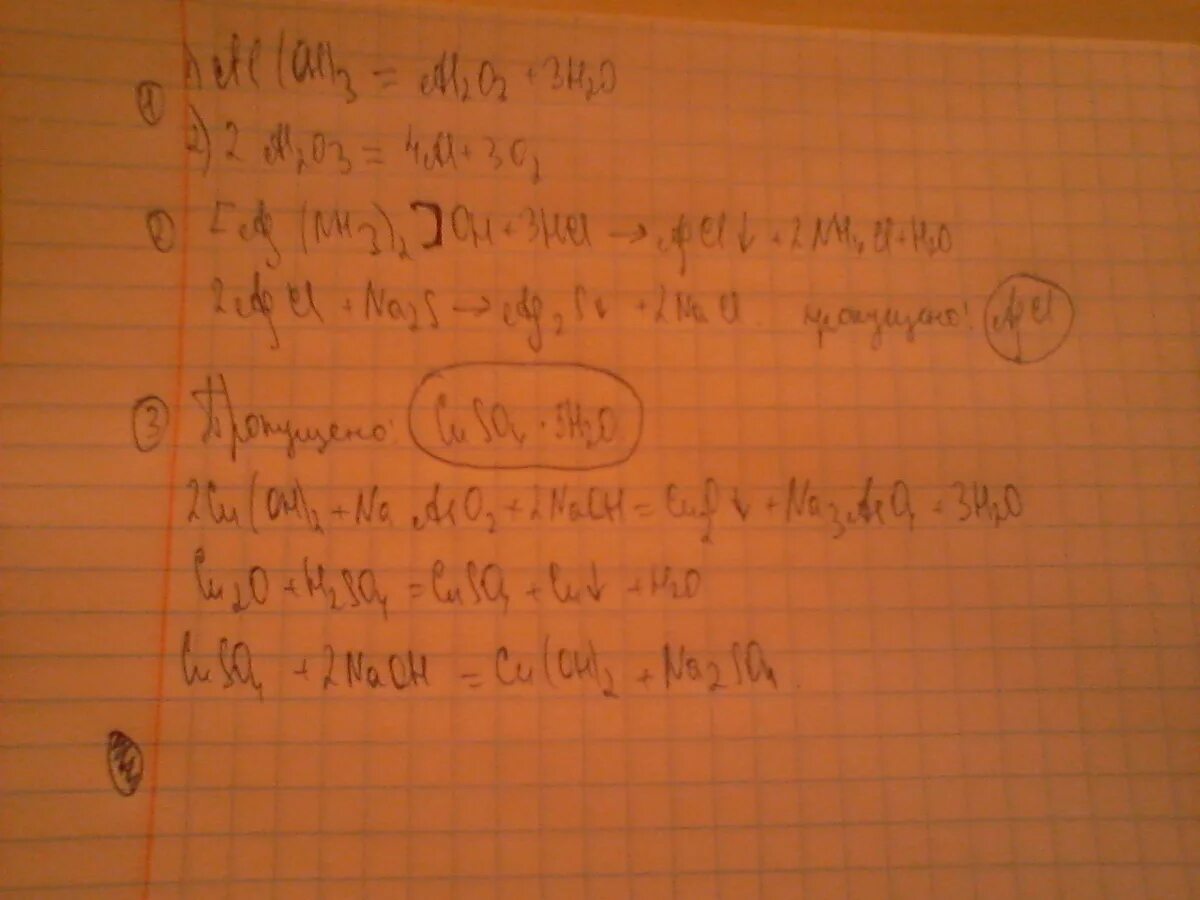 ① 1) Al(OH)₃ = Al₂O₃ + 3H₂O
2) 2Al₂O₃ = 4Al + 3O₂
② [Ag(NH₃)₂]OH + 3HCl → AgCl↓ + 2NH₄Cl + H₂O
2AgCl + Na₂S → Ag₂S↓ + 2NaCl пропущено: AgCl
③ Пропущено: CuSO₄·5H₂O
2Cu(OH)₂ + NaAsO₂ + 2NaOH = Cu₂O↓ + Na₃AsO₄ + 3H₂O
Cu₂O + H₂SO₄ = CuSO₄ + Cu↓ + H₂O
CuSO₄ + 2NaOH = Cu(OH)₂ + Na₂SO₄.